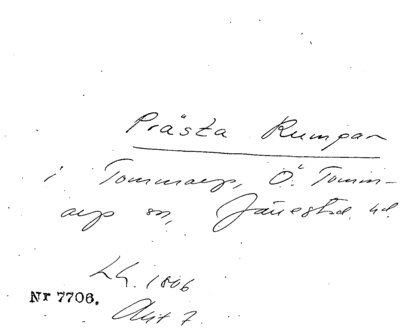 Prästa Rumpan
i Tommarp, Ö. Tomm-
arp sn, Järrestad hd
LH. 1806
Akt 7.
Nr 7706.